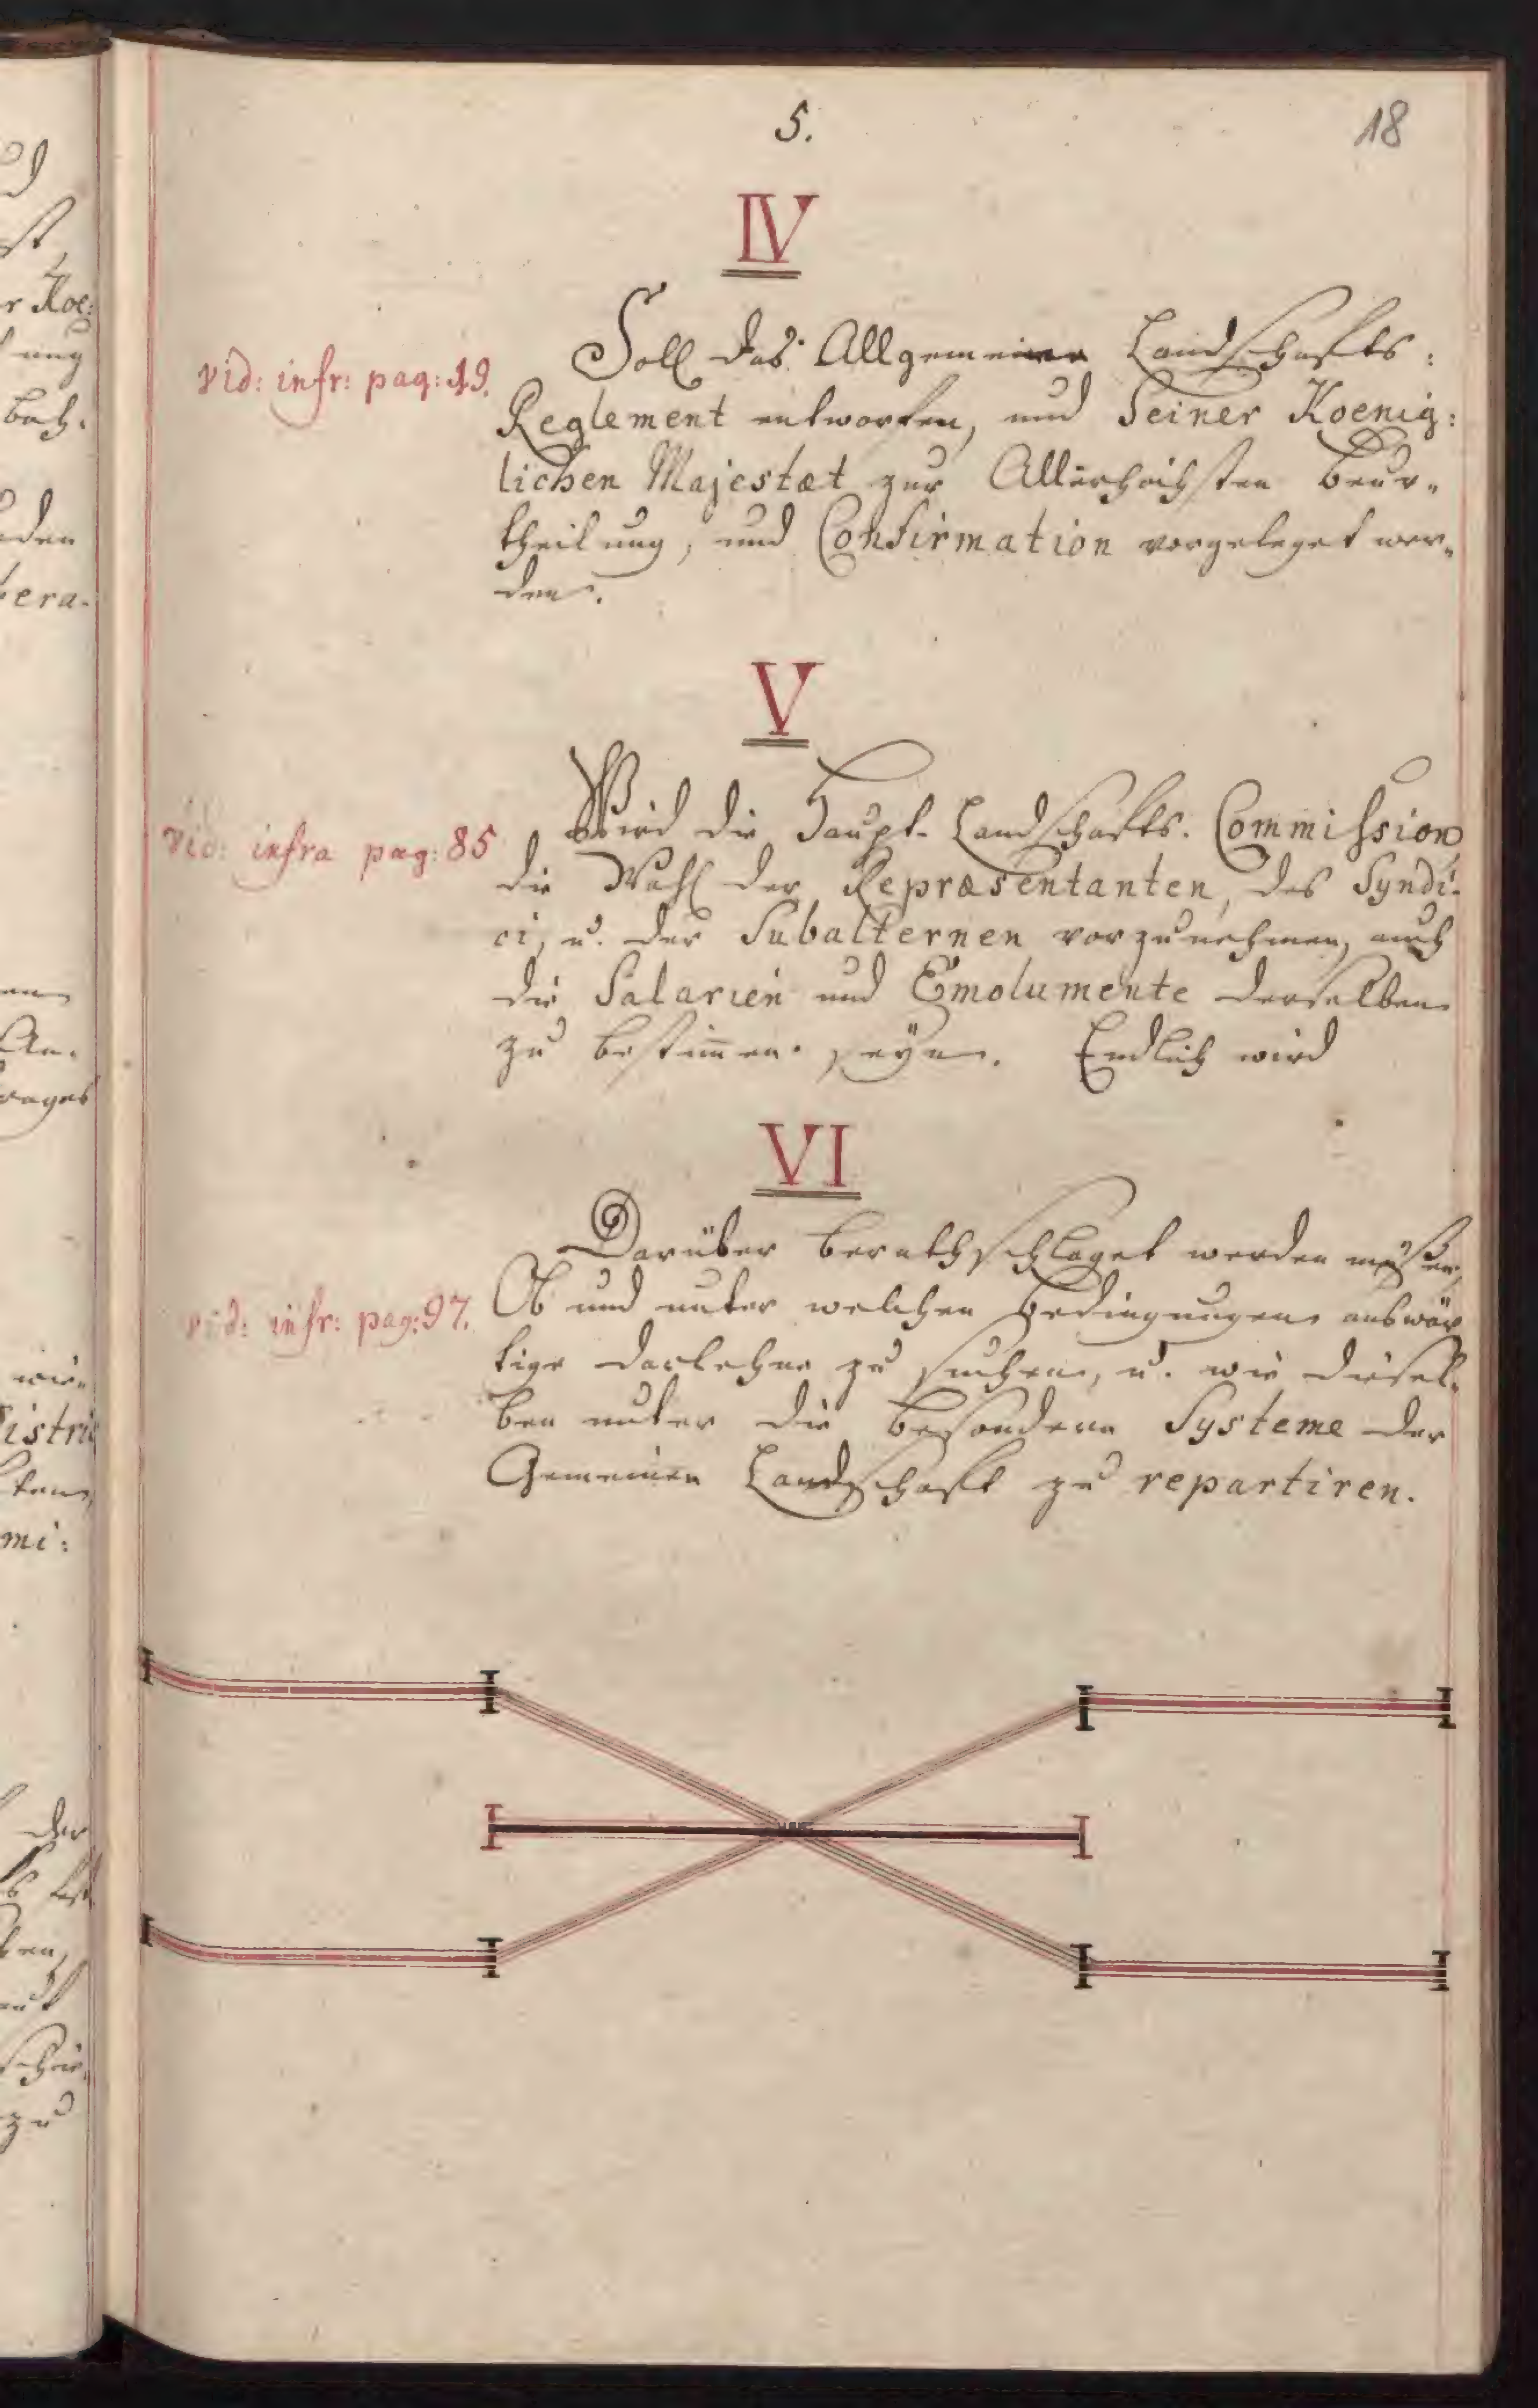 5.
18
IV
vid: infr: pag: 19.
Soll das Allgemeine Landschafts:
Reglement entworfen, und Seiner Koenig:
lichen Majestæt zur Allerhöchsten Beur-
theilung, und Confirmation vorgeleget wer-
den.
V
Vid: infra pag: 85
Wird die Haupt-Landschafts-Commission
die Wahl der Repræsentanten, des Syndi-
ci, u. der Subalternen vorzunehmen, auch
die Salarien und Emolumente derselben
zu bestim̄en seyn. Endlich wird
VI
Darüber berathschlaget werden müßen,
vid: infr: pag: 97.
Ob und unter welchen Bedingungen auswär
tige Darlehne zu suchen, u. wie diesel-
ben unter die besondern Systeme der
Gemeinen Landschaft zu repartiren.